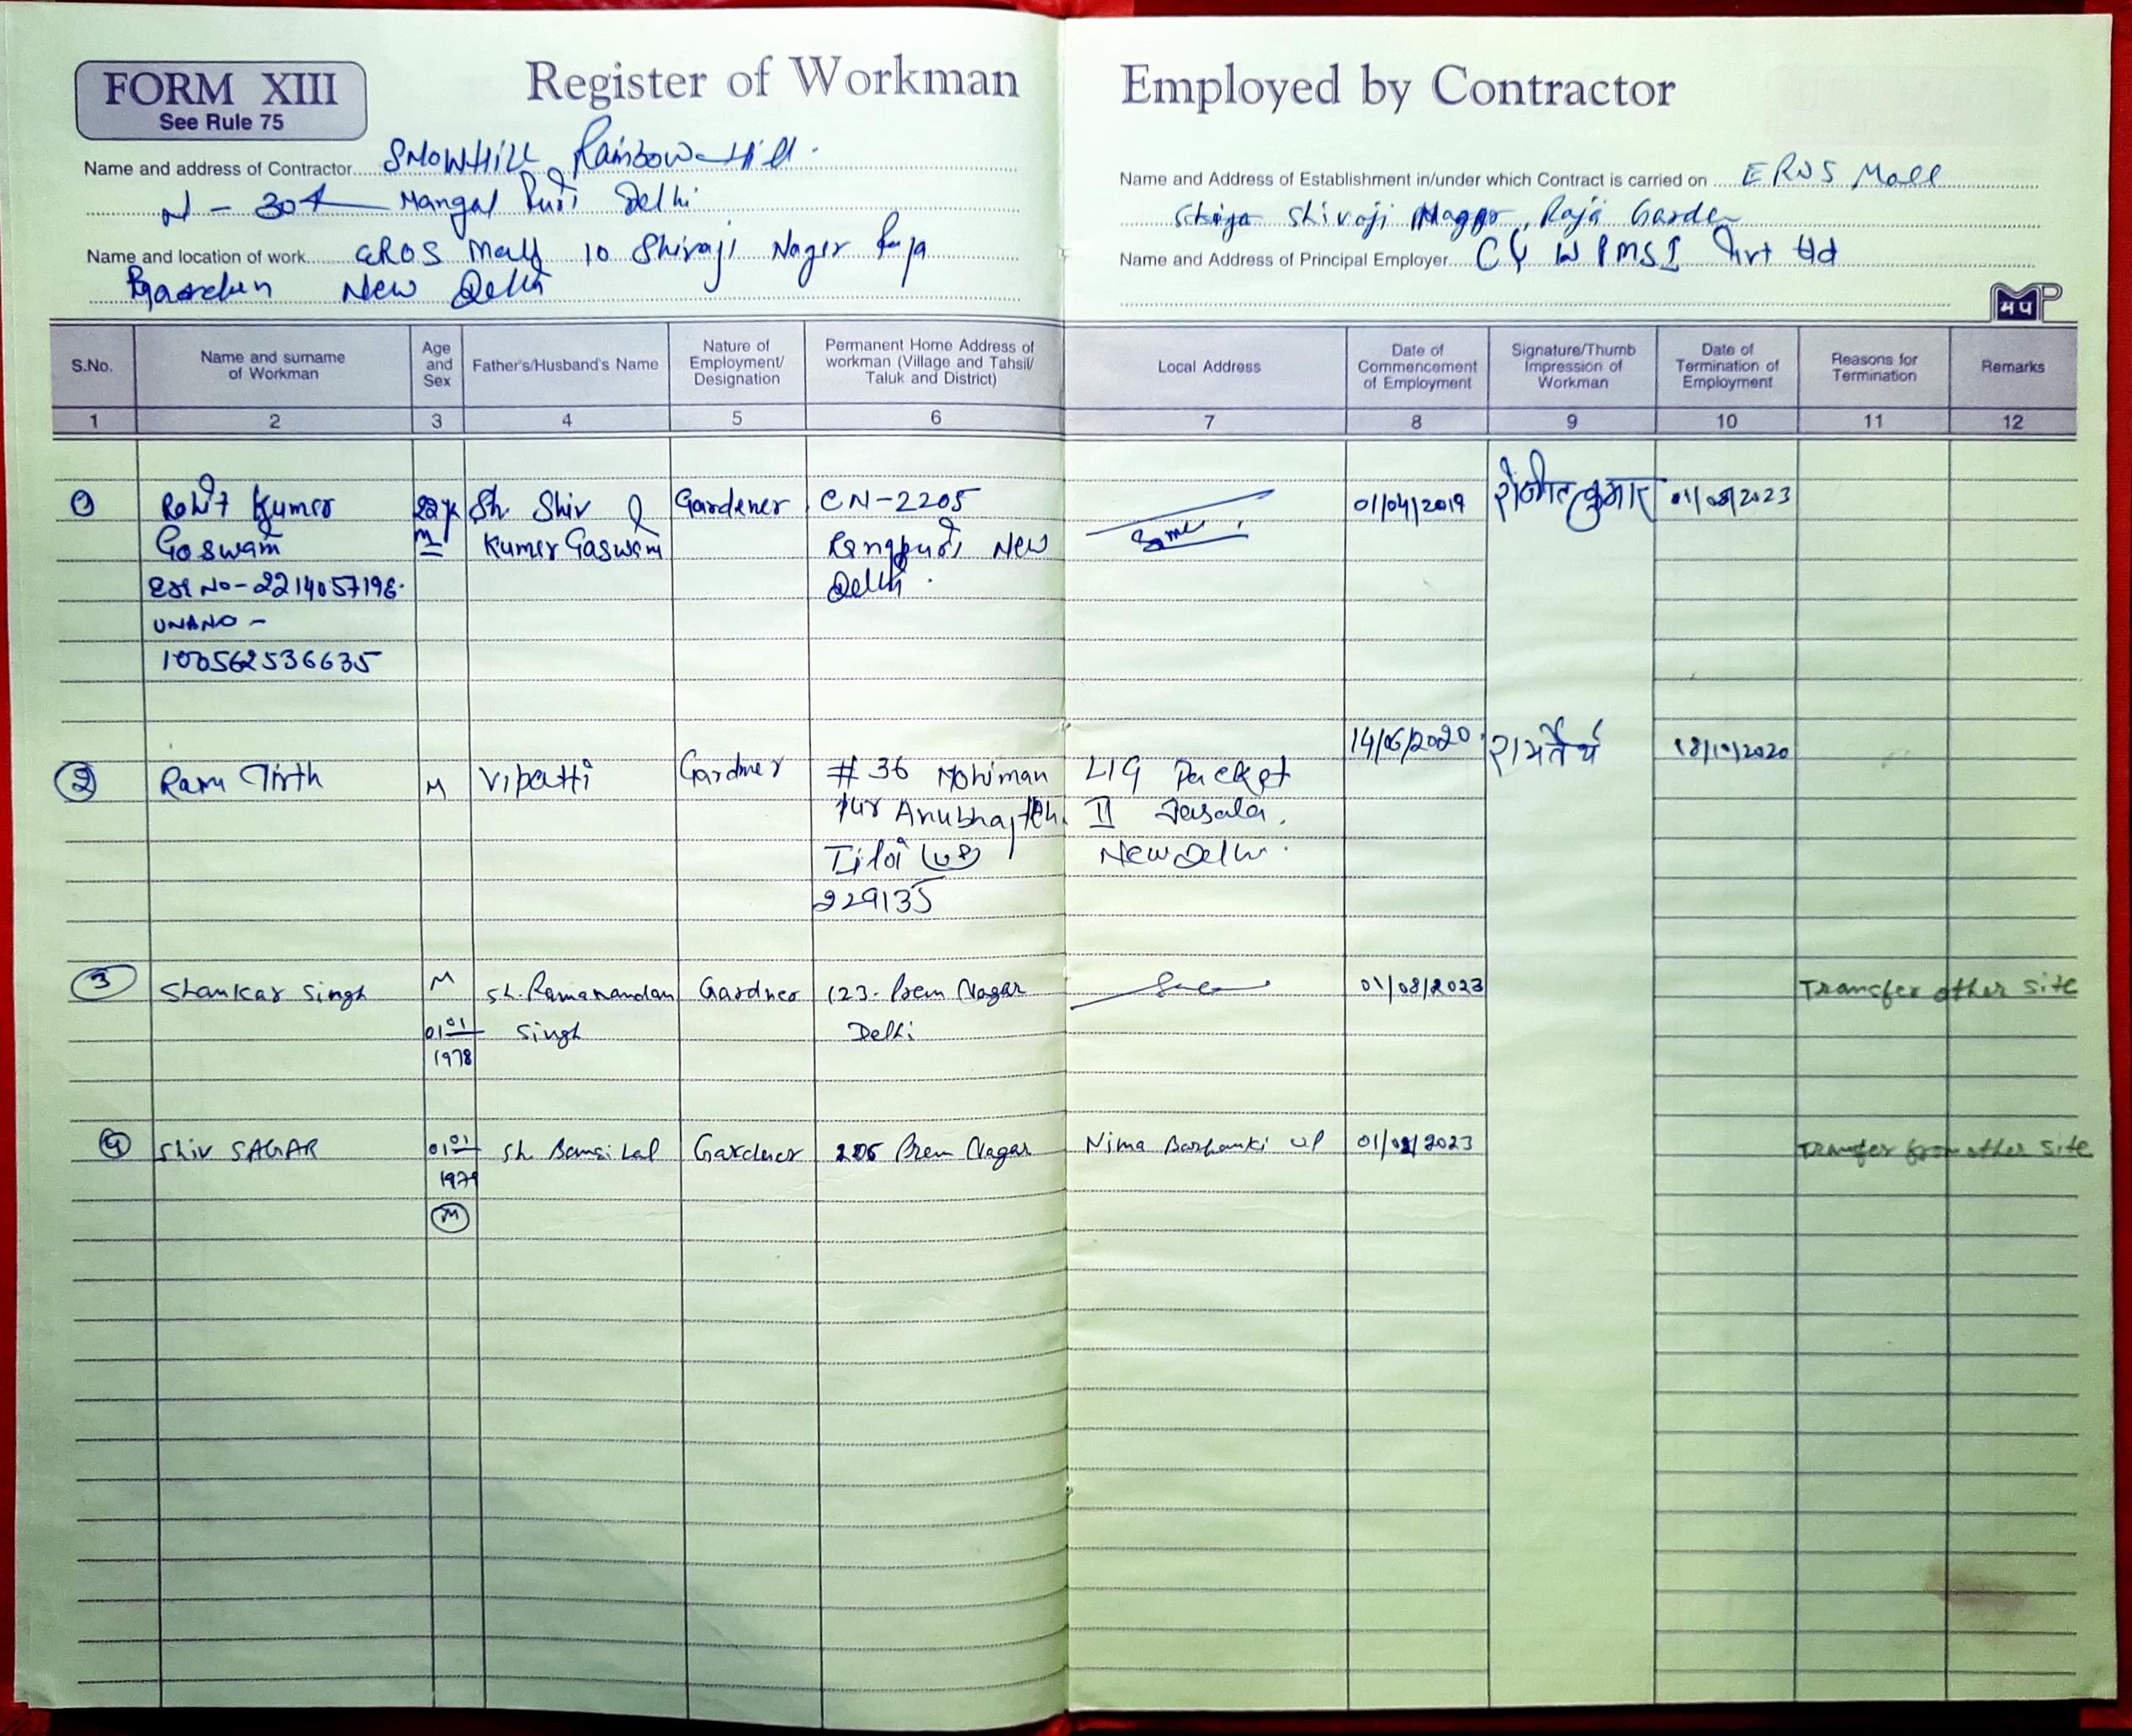 FORM XIII
See Rule 75
Register of Workman Employed by Contractor
Name and address of Contractor SNOWHILL Rainbow Hill.
N - 304 Mangal Puri Delhi
Name and location of work CROS Mall 10 Shivaji Nager Raja
Gaorden New Delhi
Name and Address of Establishment in/under which Contract is carried on EROS Mall
Shivaji Nagar, Raja Garden
Name and Address of Principal Employer C & W PMSI Pvt ltd
मप
S.No.
Name and surname
of Workman
Age
and
Sex
Father's/Husband's Name
Nature of
Employment/
Designation
Permanent Home Address of
workman (Village and Tahsil/
Taluk and District)
Local Address
Date of
Commencement
of Employment
Signature/Thumb
Impression of
Workman
Date of
Termination of
Employment
Reasons for
Termination
Remarks
1 2 3 4 5 6 7 8 9 10 11 12
1 Rohit Kumar Sh. Shiv Gardener CN-2205 Same 01/04/2019 01/08/2023
Goswami M Kumar Goswami Rangpuri New
ESI No-2214057196. Delhi.
UNANO -
100562536635
2 Ram Tirth M Vipatti Gardner # 36 Mohiman LIG Packet 14/06/2020 रामतीर्थ 18/10/2020
pur Anubha, teh. II Jasala,
Tiloi (UP) New Delhi.
229135
3 Shankar Singh M Sh. Ramanandan Gardner 123- Prem Nagar 01/08/2023 Transfer other site
0101 Singh Delhi
1978
4 Shiv SAGAR 0101 Sh. Bansi Lal Gardner 206 Prem Nagar Nima Barbanki UP 2023 Transfer from other site
1979
M